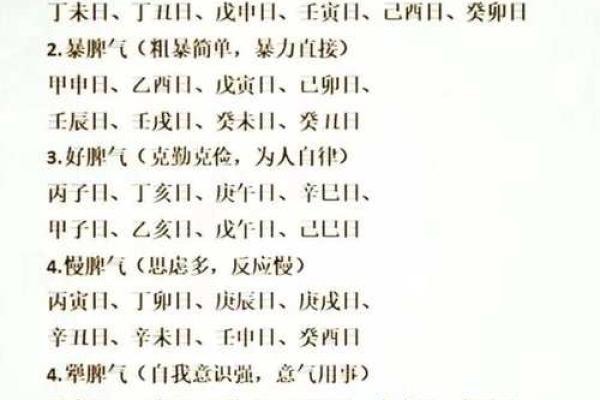 丁未日、丁丑日、戊申日、壬寅日、己酉日、癸卯日
2.暴脾气（粗暴简单，暴力直接）
甲申日、乙酉日、戊寅日、己卯日、
壬辰日、壬戌日、癸未日、癸丑日
3.好脾气（克勤克俭，为人自律）
丙子日、丁亥日、庚午日、辛巳日、
甲子日、乙亥日、戊午日、己巳日
4.慢脾气（思虑多，反应慢）
丙寅日、丁卯日、庚辰日、庚戌日、
辛丑日、辛未日、壬申日、癸酉日
4.犟脾气（自我意识强，意气用事）